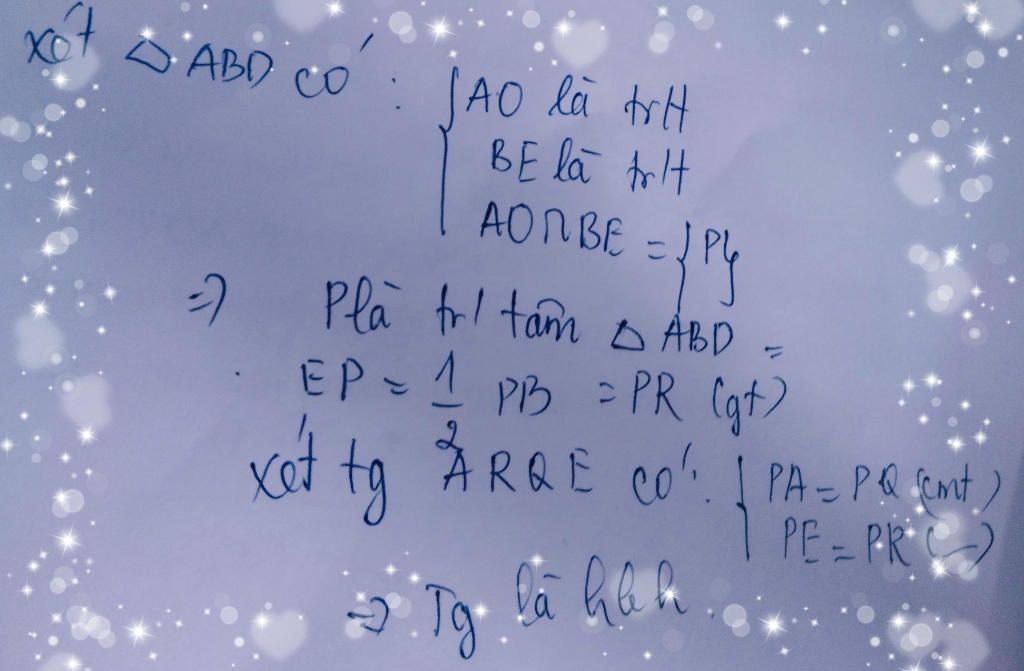 xét △ ABD có : { AO là trtt
BE là trtt
AO∩BE = {P}
=> P là tr/ tâm △ ABD =
EP = 1/2 PB = PR (gt)
xét tg ARQE có : { PA = PQ (cmt)
PE = PR (—)
=> Tg là hbh.